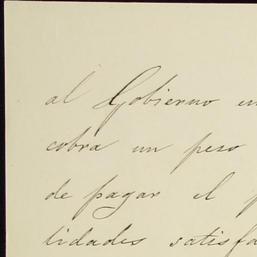 al Gobierno en
cobra un peso
de pagar el p
lidades satisfa